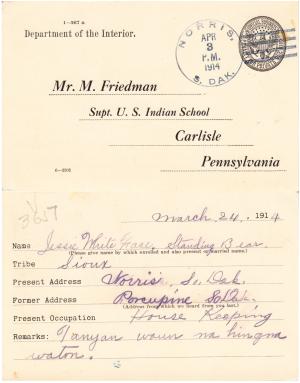 1—967 a
Department of the Interior.
NORRIS,
APR
3
P.M.
1914
S. DAK.
Mr. M. Friedman
Supt. U. S. Indian School
Carlisle
Pennsylvania
6—2101
3657
March 24, 1914
Name Jessie White Face, Standing Bear
(Please give name by which enrolled and also present if married name.)
Tribe Sioux
Present Address Norris, So. Dak.
Former Address Porcupine So Dak.
(Address from which we heard from you last.)
Present Occupation House Keeping
Remarks: Tanyan waun na hingna
waton.